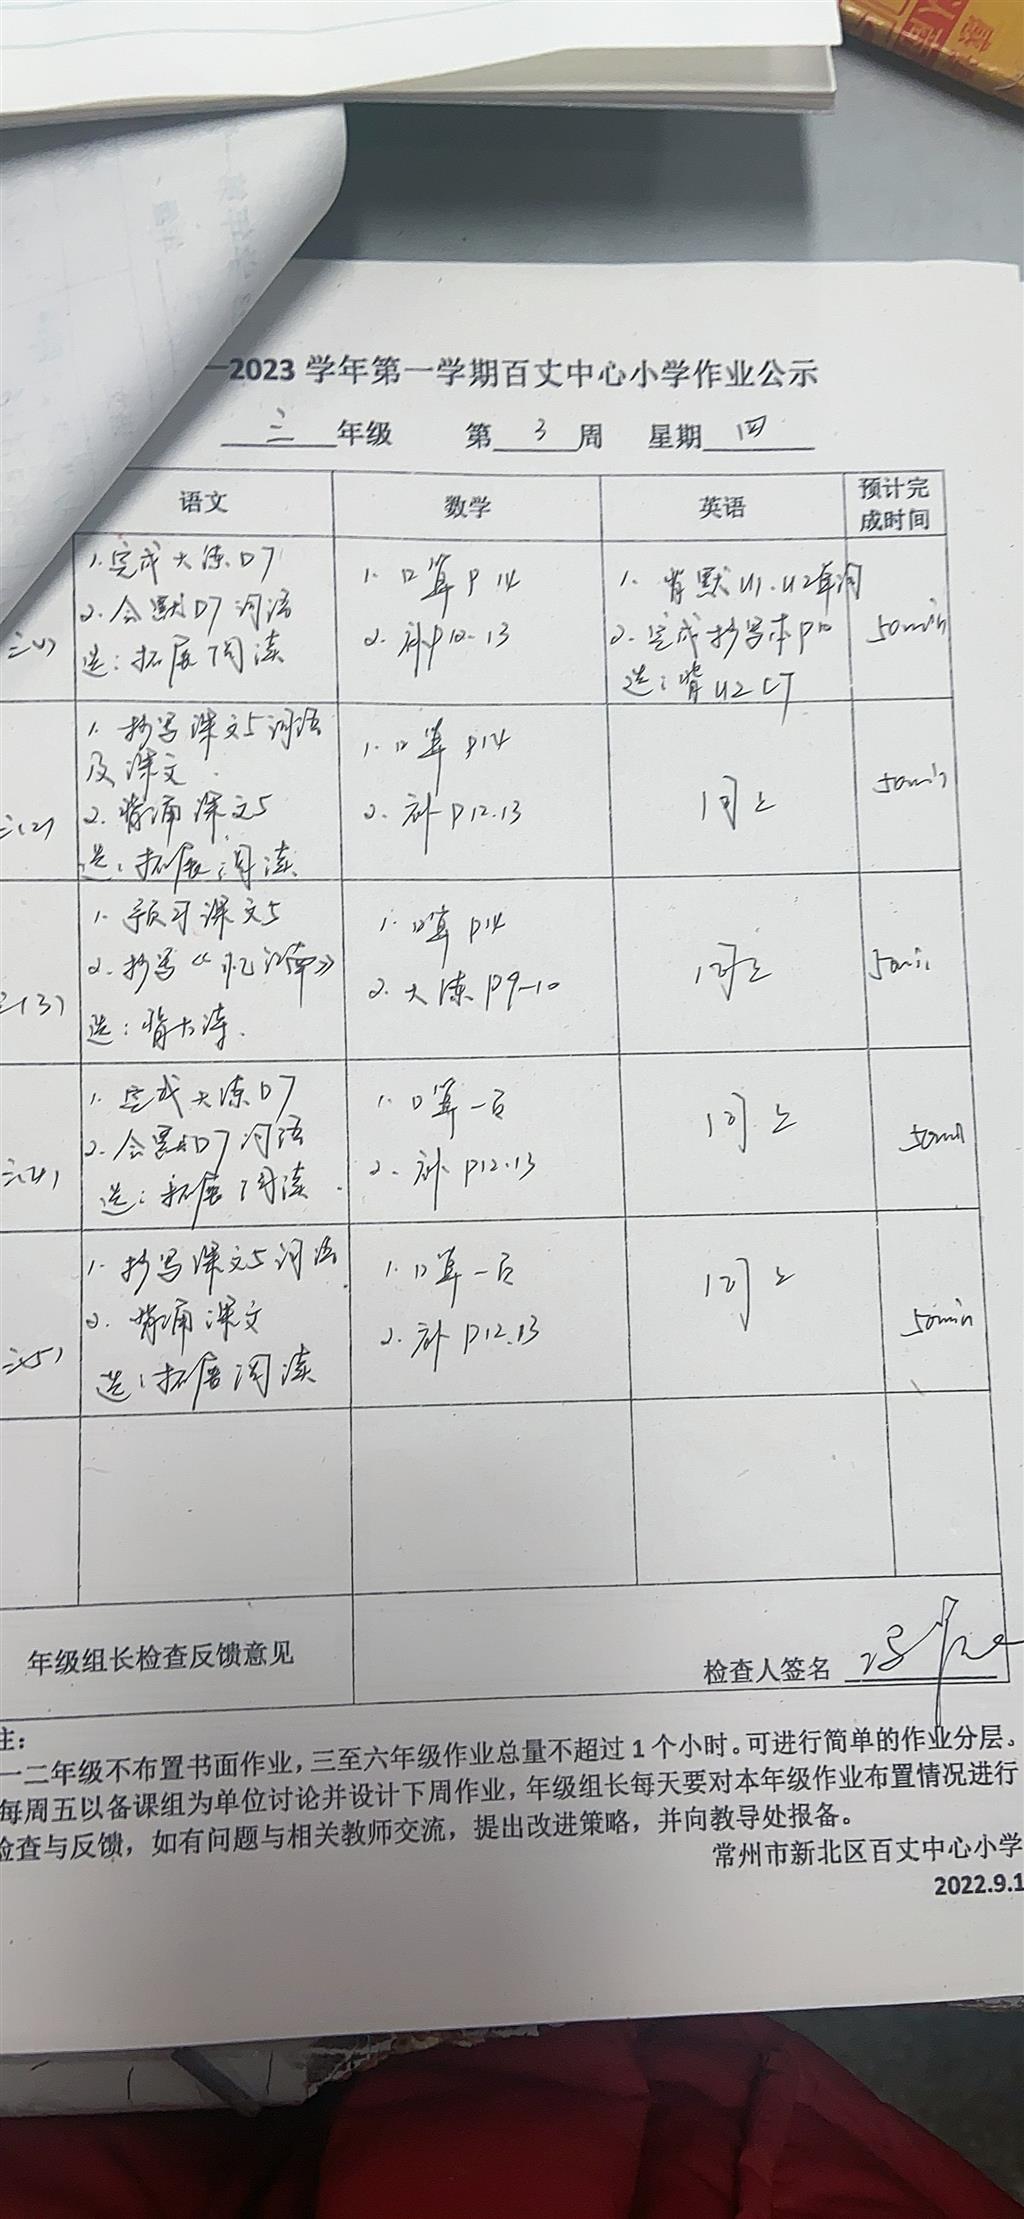 —2023 学年第一学期百丈中心小学作业公示
三 年级 第 3 周 星期 四
语文 数学 英语 预计完成时间
三(1)
1. 完成大练D7
2. 会默D7词语
选:拓展阅读
1. 口算P14
2. 补P12-13
1. 背默U1.U2单词
2. 完成抄写本P10
选:背U2 CT
50min
三(2)
1. 抄写课文5词语
及课文.
2. 背诵课文5
选:拓展阅读
1. 口算P14
2. 补P12.13
同上
50min
三(3)
1. 预习课文5
2. 抄写《忆江南》
选:背大练.
1. 口算P14
2. 大练P9-10
同上
50min
三(4)
1. 完成大练D7
2. 会默D7词语
选:拓展阅读.
1. 口算一百
2. 补P12.13
同上
50min
三(5)
1. 抄写课文5词语
2. 背诵课文
选:拓展阅读
1. 口算一百
2. 补P12.13
同上
50min
年级组长检查反馈意见
检查人签名
注:
一二年级不布置书面作业,三至六年级作业总量不超过1个小时。可进行简单的作业分层。
每周五以备课组为单位讨论并设计下周作业,年级组长每天要对本年级作业布置情况进行
检查与反馈,如有问题与相关教师交流,提出改进策略,并向教导处报备。
常州市新北区百丈中心小学
2022.9.1